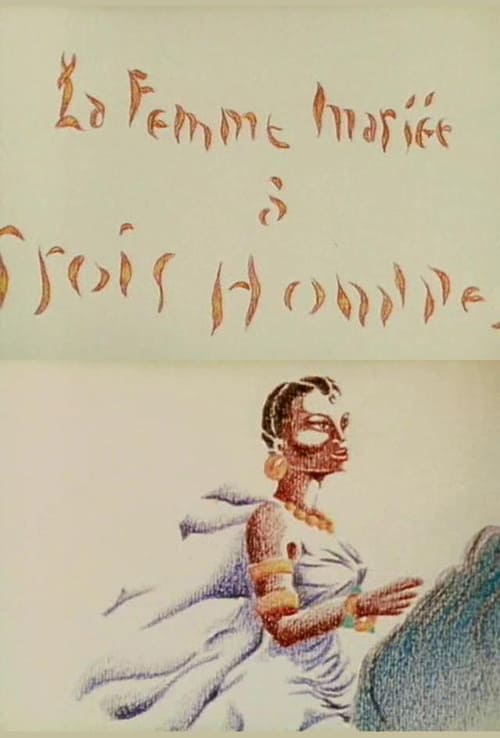 La Femme mariée
à
Trois Homme